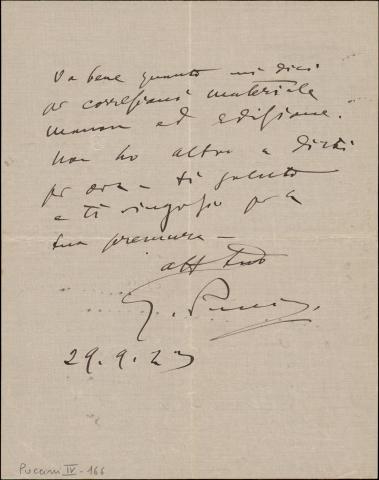 Va bene quanto mi dici
per correzioni materiale
manon ed edizione.
non ho altro a dirti
per ora – ti saluto
e ti ringrazio per la
tua premura –
aff tuo
G. Puccini
29.9.23
Puccini IV - 166